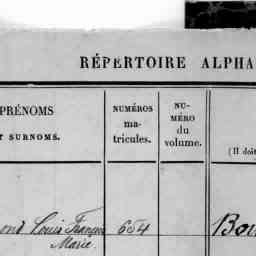 RÉPERTOIRE ALPHA
PRÉNOMS
T SURNOMS.
NUMÉROS
ma-
tricules.
NU-
MÉRO
du
volume.
(Il doit
ond Louis François 654 Bou
Marie.